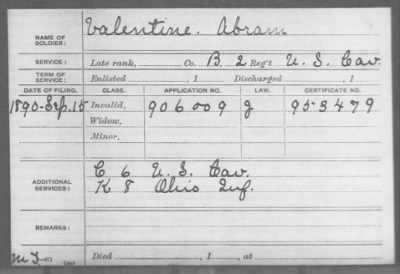 NAME OF SOLDIER: Valentine, Abram
SERVICE: Late rank, Co. B, 2 Reg't U. S. Cav.
TERM OF SERVICE: Enlisted , 1 Discharged , 1
DATE OF FILING. CLASS. APPLICATION NO. LAW. CERTIFICATE NO.
1890-Sep.15 Invalid, 906009 J 953479
Widow,
Minor,
ADDITIONAL SERVICES: C 6 U. S. Cav.
K 8 Ohio Inf.
REMARKS:
Died , 1 , at